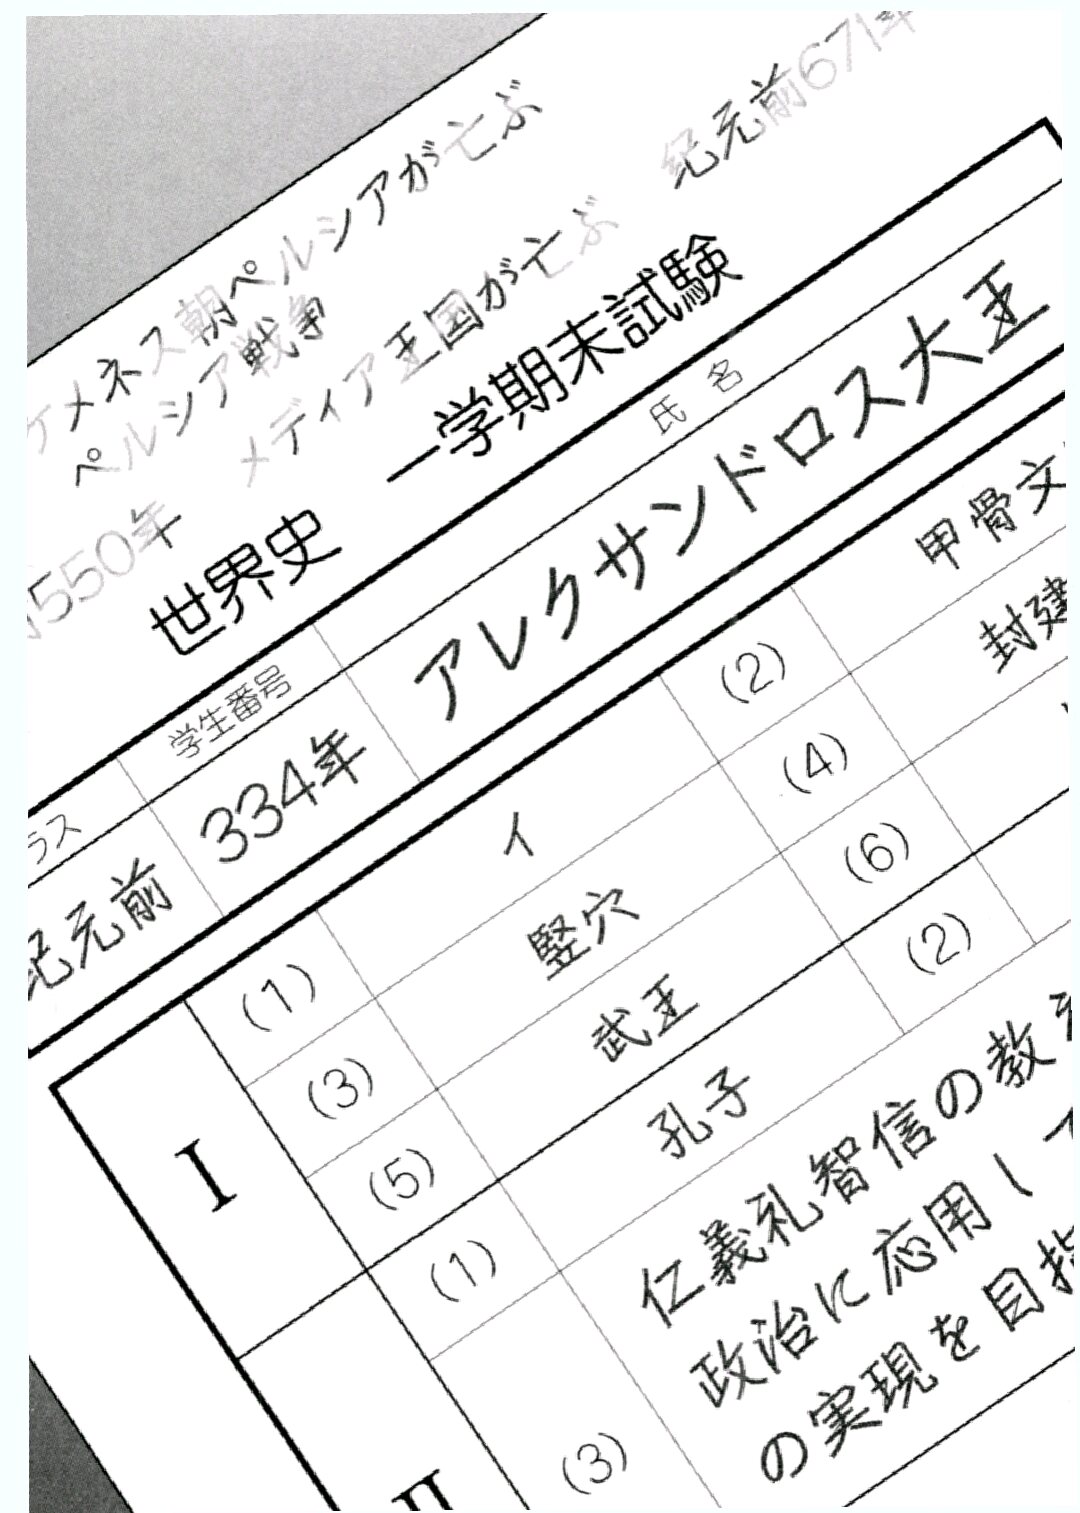 ケメネス朝ペルシアが亡ぶ
ペルシア戦争
紀元前671年
メディア王国が亡ぶ
550年
世界史
一学期末試験
ラス
学生番号
氏名
紀元前
334年
アレクサンドロス大王
I
(1)
イ
(2)
甲骨文
(3)
竪穴
(4)
封建
(5)
武王
(6)
II
(1)
孔子
(2)
(3)
仁義礼智信の教え
政治に応用して
の実現を目指